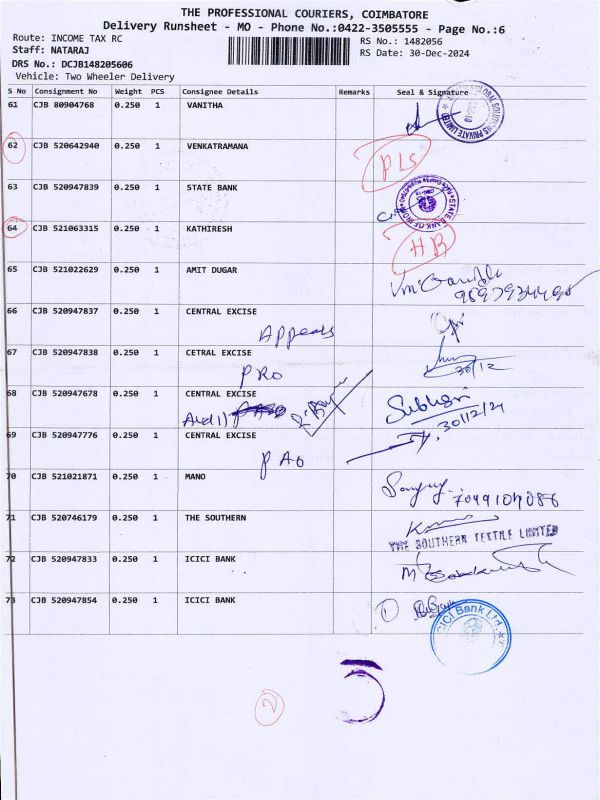 THE PROFESSIONAL COURIERS, COIMBATORE
Delivery Runsheet - MO - Phone No.:0422-3505555 - Page No.:6
Route: INCOME TAX RC
RS No.: 1482056
Staff: NATARAJ
RS Date: 30-Dec-2024
DRS No.: DCJB148205606
Vehicle: Two Wheeler Delivery
S No Consignment No Weight PCS Consignee Details Remarks Seal & Signature
61 CJB 80904768 0.250 1 VANITHA
62 CJB 520642940 0.250 1 VENKATRAMANA
PLS
63 CJB 520947839 0.250 1 STATE BANK
STATE BANK OF INDIA
64 CJB 521063315 0.250 1 KATHIRESH
HB
65 CJB 521022629 0.250 1 AMIT DUGAR
66 CJB 520947837 0.250 1 CENTRAL EXCISE
Appeals
67 CJB 520947838 0.250 1 CETRAL EXCISE
PRO
30/12
68 CJB 520947678 0.250 1 CENTRAL EXCISE
30/12/24
69 CJB 520947776 0.250 1 CENTRAL EXCISE
PAO
70 CJB 521021871 0.250 1 MANO
71 CJB 520746179 0.250 1 THE SOUTHERN
THE SOUTHERN TEXTILE LIMITED
72 CJB 520947833 0.250 1 ICICI BANK
73 CJB 520947854 0.250 1 ICICI BANK
1
ICICI Bank Ltd.
2